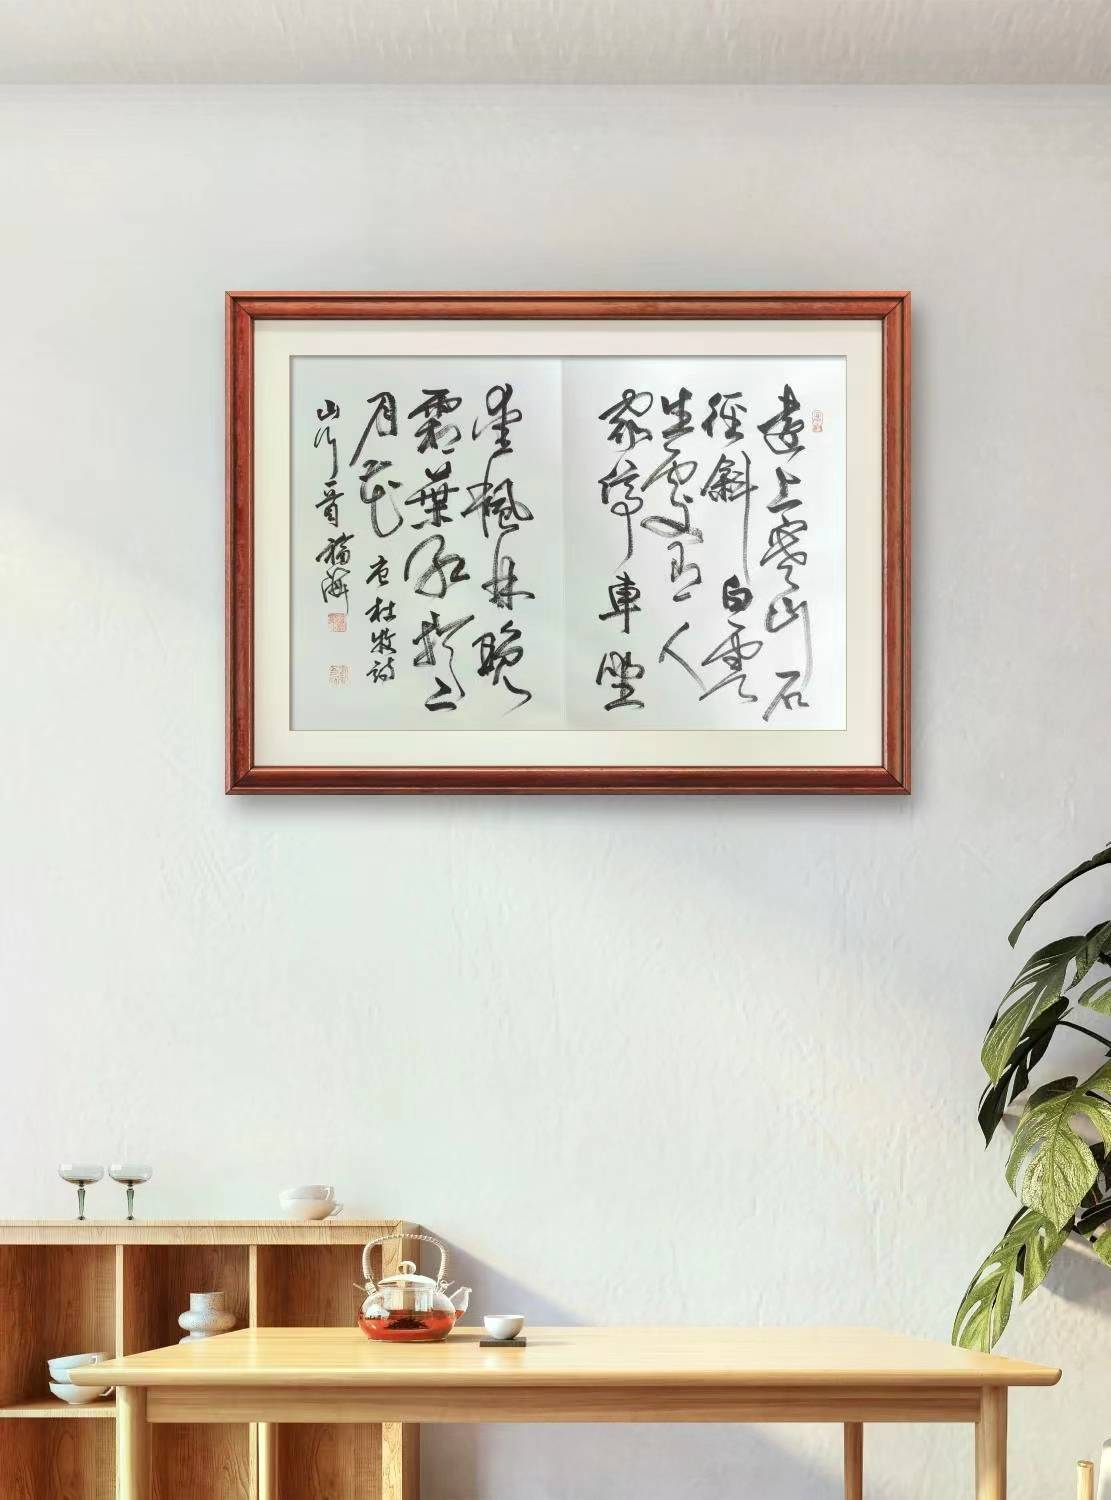 遠上寒山石
徑斜白雲
生處有人
家停車坐
愛楓林晚
霜葉紅於二
月花
唐杜牧詩
山行一首